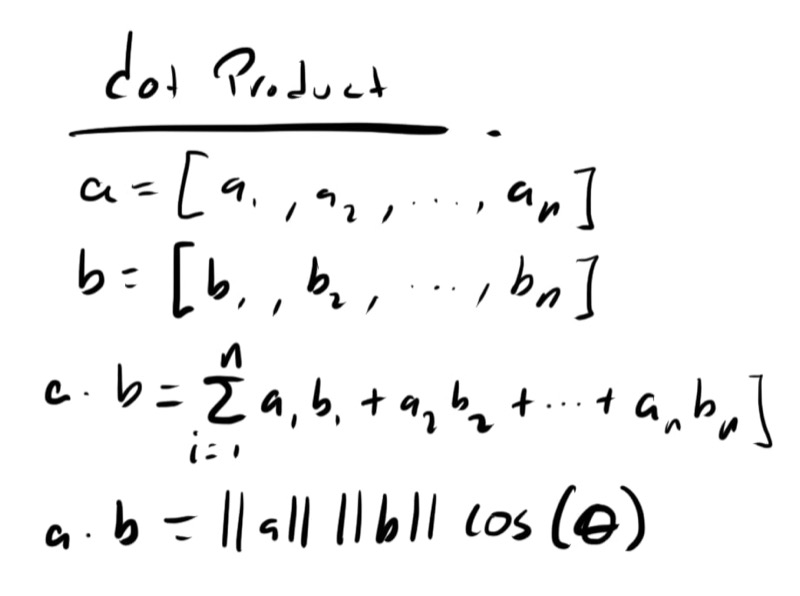 dot Product
a = [a₁, a₂, ..., aₙ]
b = [b₁, b₂, ..., bₙ]
a · b = ∑ⁿᵢ₌₁ a₁b₁ + a₂b₂ + ... + aₙbₙ]
a · b = ||a|| ||b|| cos(θ)